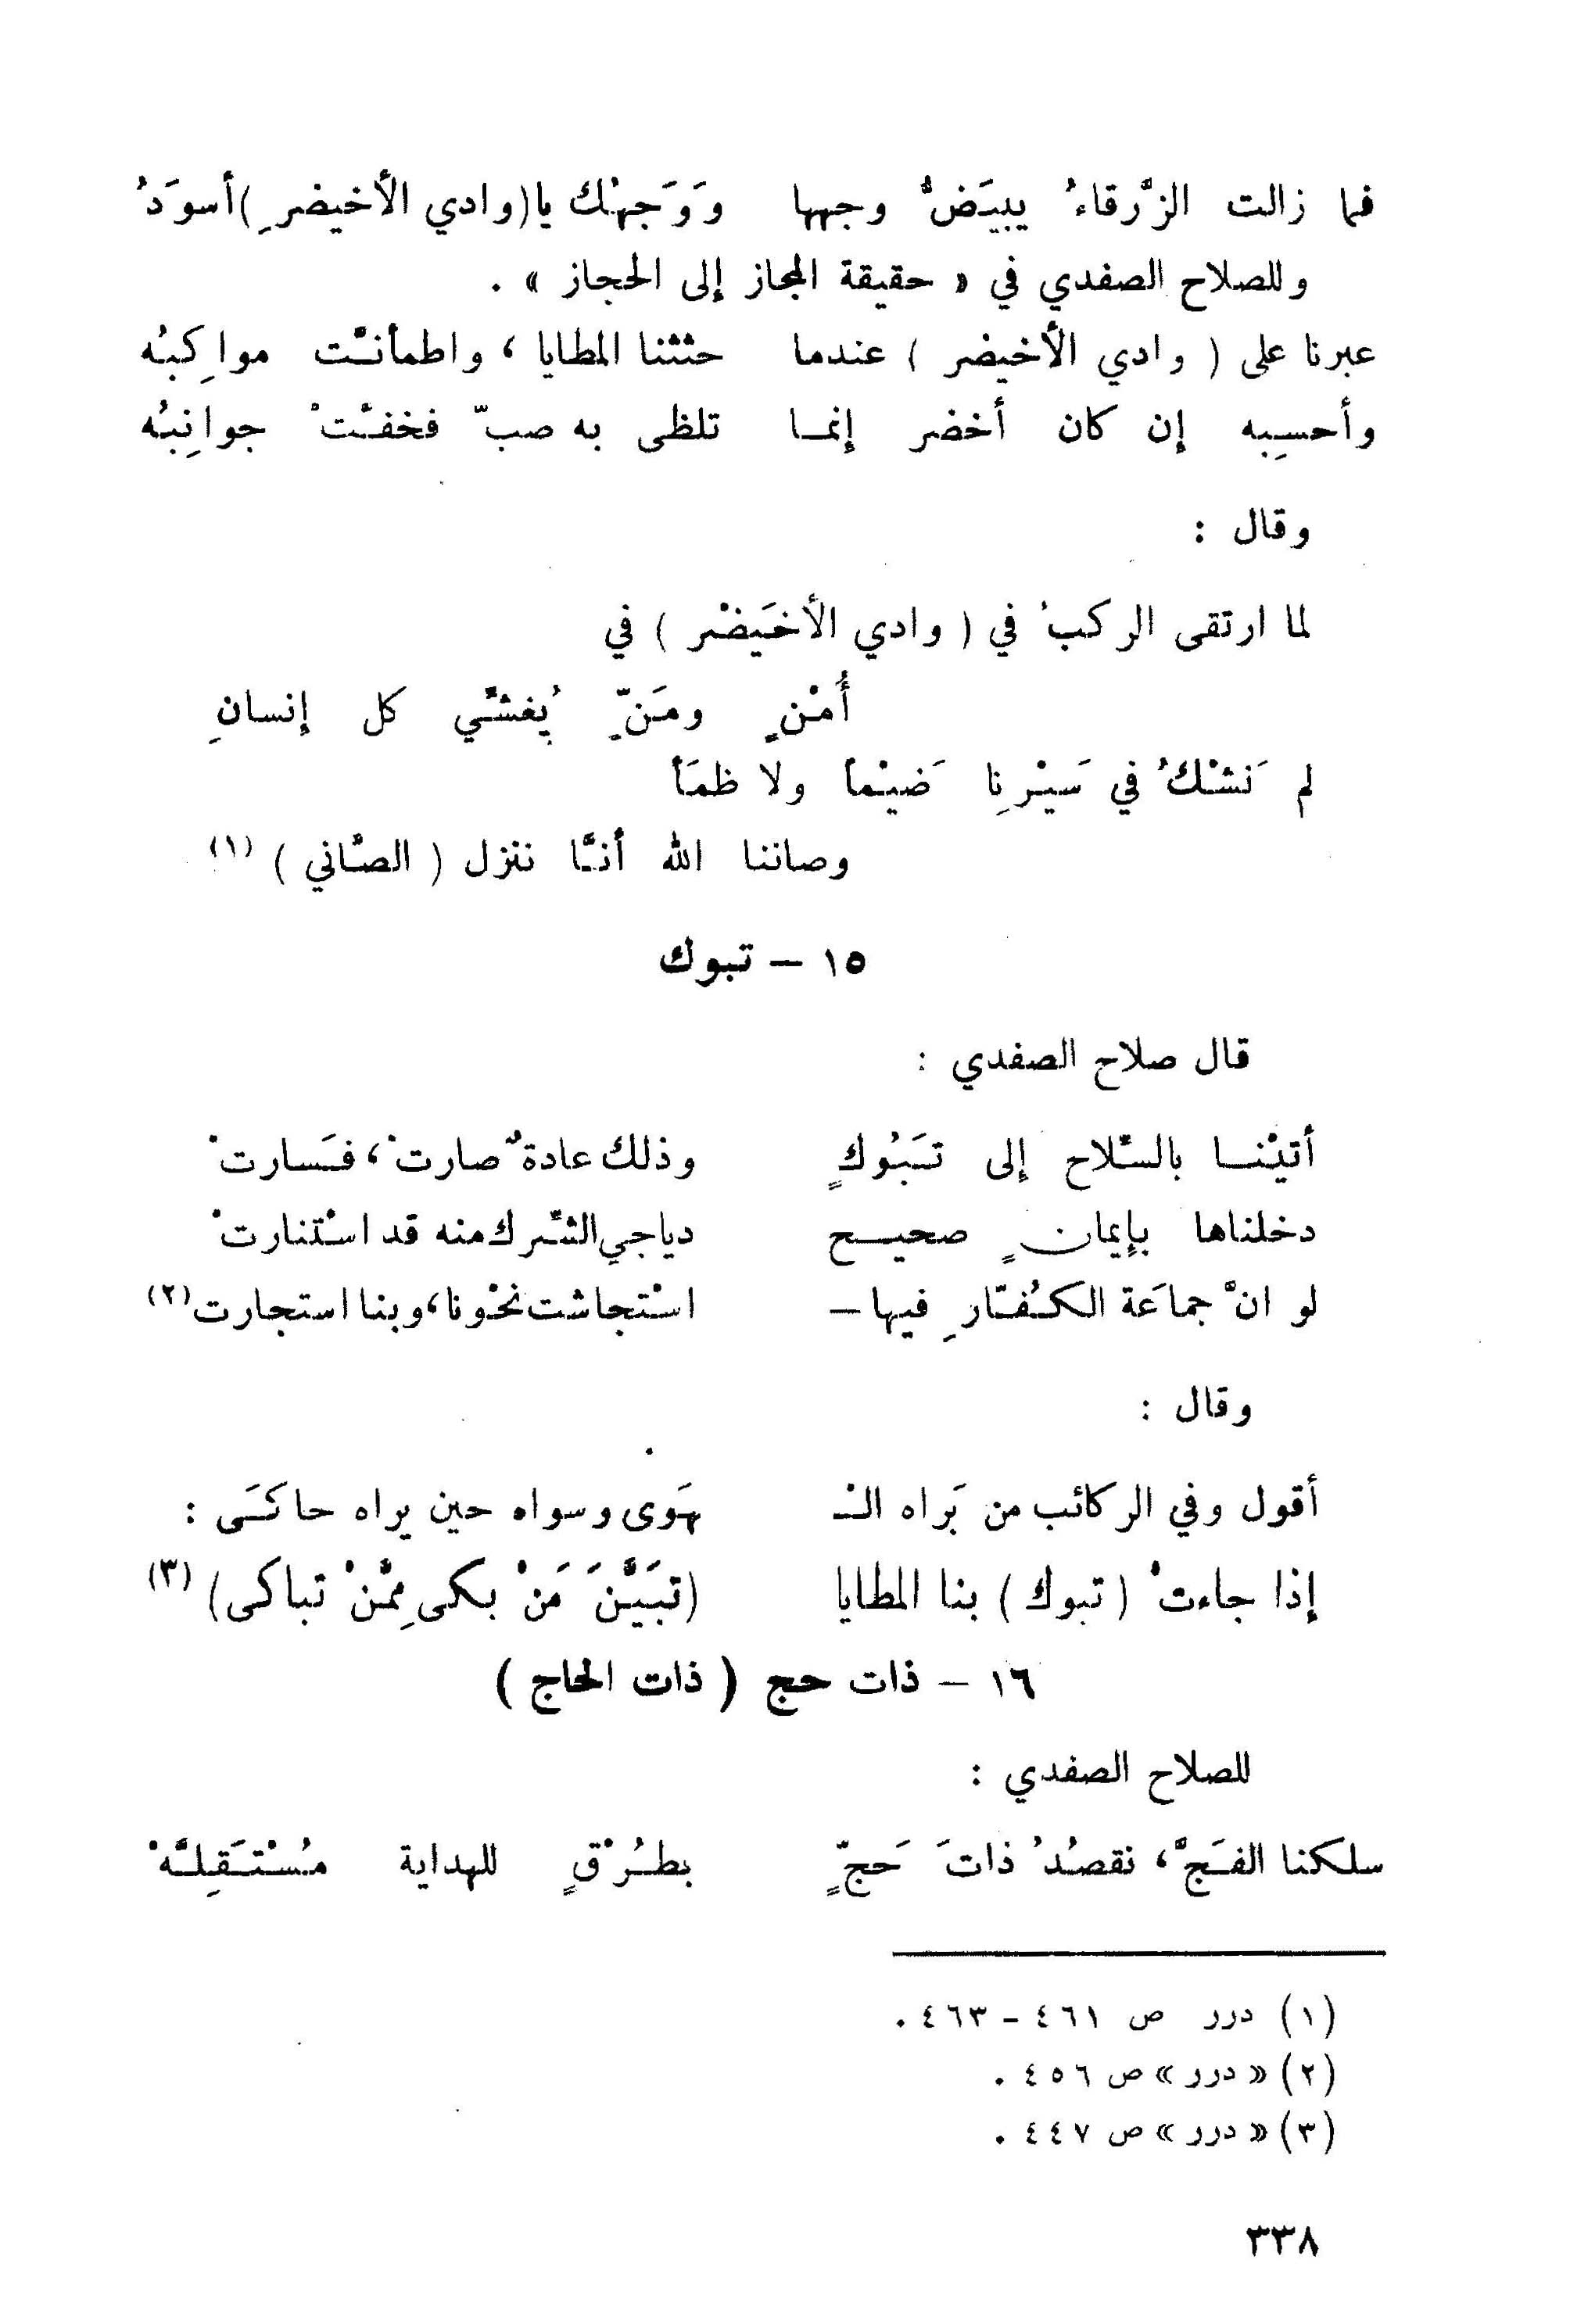 فما زالت الزَّرقاءُ يبيَضُّ وجهها    وَوَجهُك يا (وادي الأخيضرِ) أسوَدُ
وللصلاح الصفدي في « حقيقة المجاز إلى الحجاز » .
عبرنا على ( وادي الأخيضر ) عندما    حثثنا المطايا ، واطمأنـَّت مواكِبُه
وأحسِبه إن كان أخضر إنمـا    تلظى به صبّ فخفـَّتْ جوانِبُه
وقال :
لما ارتقى الركبُ في ( وادي الأخَيضْر ) في
أُمْنٍ ومَنٍّ يُغشّي كل إنسانِ
لم نَشْكُ في سَيْرِنا ضَيْماً ولا ظمَأ
وصاننا الله أنـَّا ننزل ( الصّاني ) (١)
١٥ – تبوك
قال صلاح الصفدي :
أتيْنـا بالسِّلاح إلى تَبُوكٍ    وذلك عادةٌ صارتْ ، فَسارتْ
دخلناها بإيمانٍ صحيـح    دياجي الشّرك منه قد اسْتنارتْ
لو انّ جماعَة الكُفّارِ فيها –    اسْتجاشت نحْونا، وبنا استجارت (٢)
وقال :
أقول وفي الركائب من بَراه الـ    ـهَوى وسواه حين يراه حاكَى :
إذا جاءتْ ( تبوك ) بنا المطايا    (تبَيَّنَ مَنْ بكى مِمَّنْ تباكى) (٣)
١٦ – ذات حج ( ذات الحاج )
للصلاح الصفدي :
سلكنا الفَجَّ ، نقصُدُ ذاتَ حَجٍّ    بطُرْقٍ للهداية مُسْتَقِلَّهْ
(١) درر ص ٤٦١ – ٤٦٣ .
(٢) « درر » ص ٤٥٦ .
(٣) « درر » ص ٤٤٧ .
٣٣٨